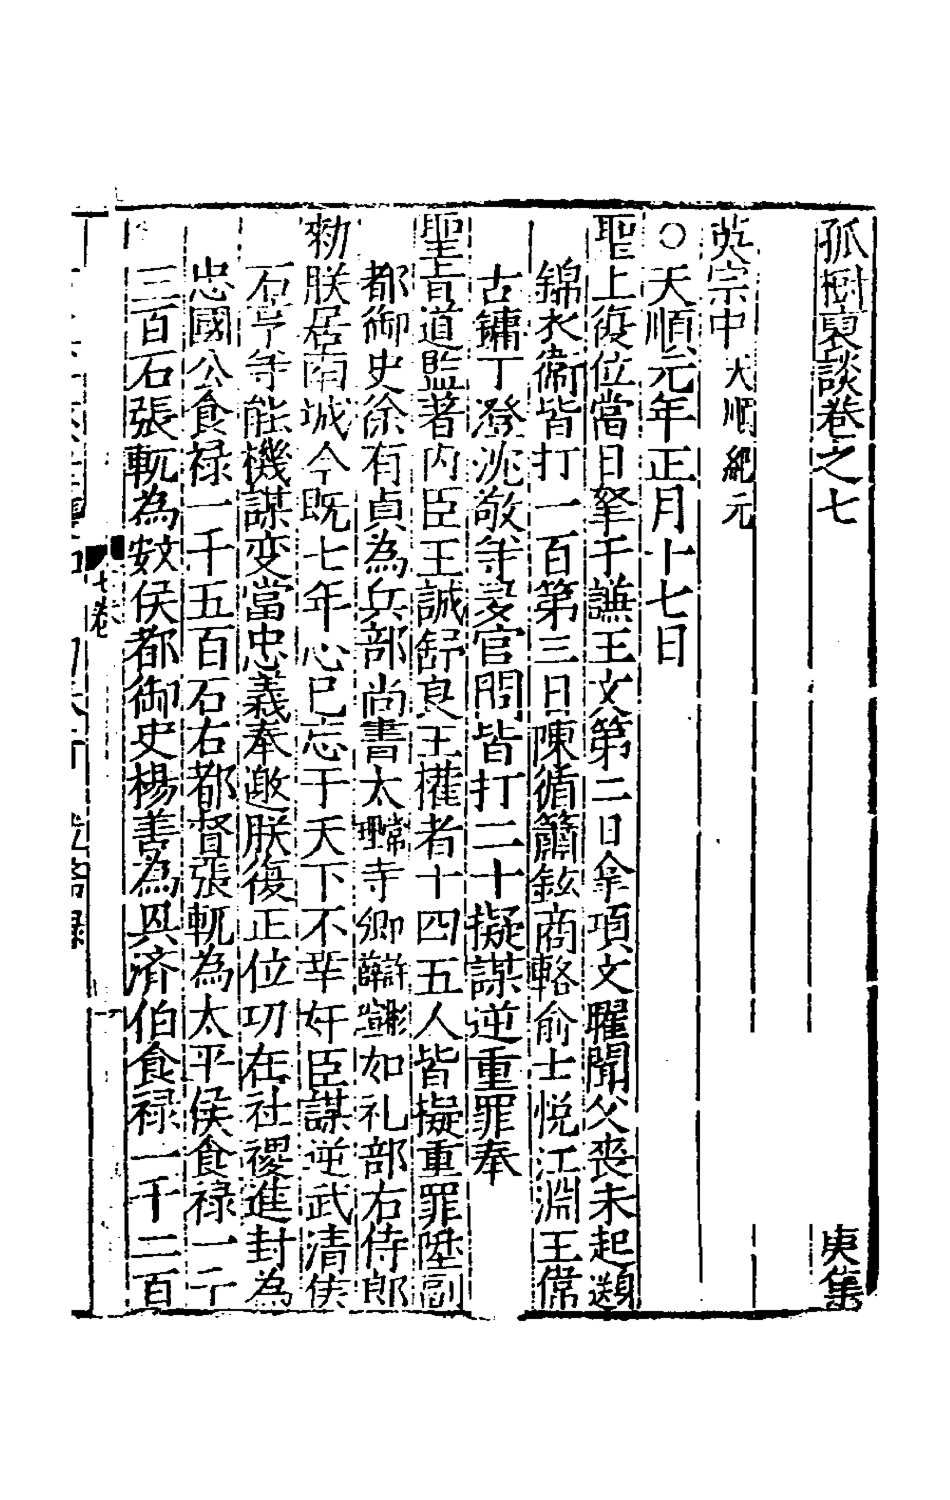 孤樹裒談卷之七　庚集
英宗中 天順紀元
○天順元年正月十七日
聖上復位當日拏于謙王文第二日拿項文曜聞父丧未起遞
錦衣衛皆打一百第三日陳循籥鉉商輅俞士悦江淵王偉
古鏞丁澄沈敬等妥官問皆打二十擬謀逆重罪奉
聖旨道監著内臣王誠舒良王權者十四五人皆擬重罪陞副
都御史徐有貞為兵部尚書太常寺卿許彬如礼部右侍郎
勑朕居南城今既七年心已忘于天下不幸奸臣謀逆武清侯
石亨等能機謀变當忠義奉邀朕復正位功在社禝進封為
忠國公食禄一千五百石右都督張軏為太平侯食禄一千
三百石張軏為侯都御史楊善為興濟伯食禄一千二百
七卷